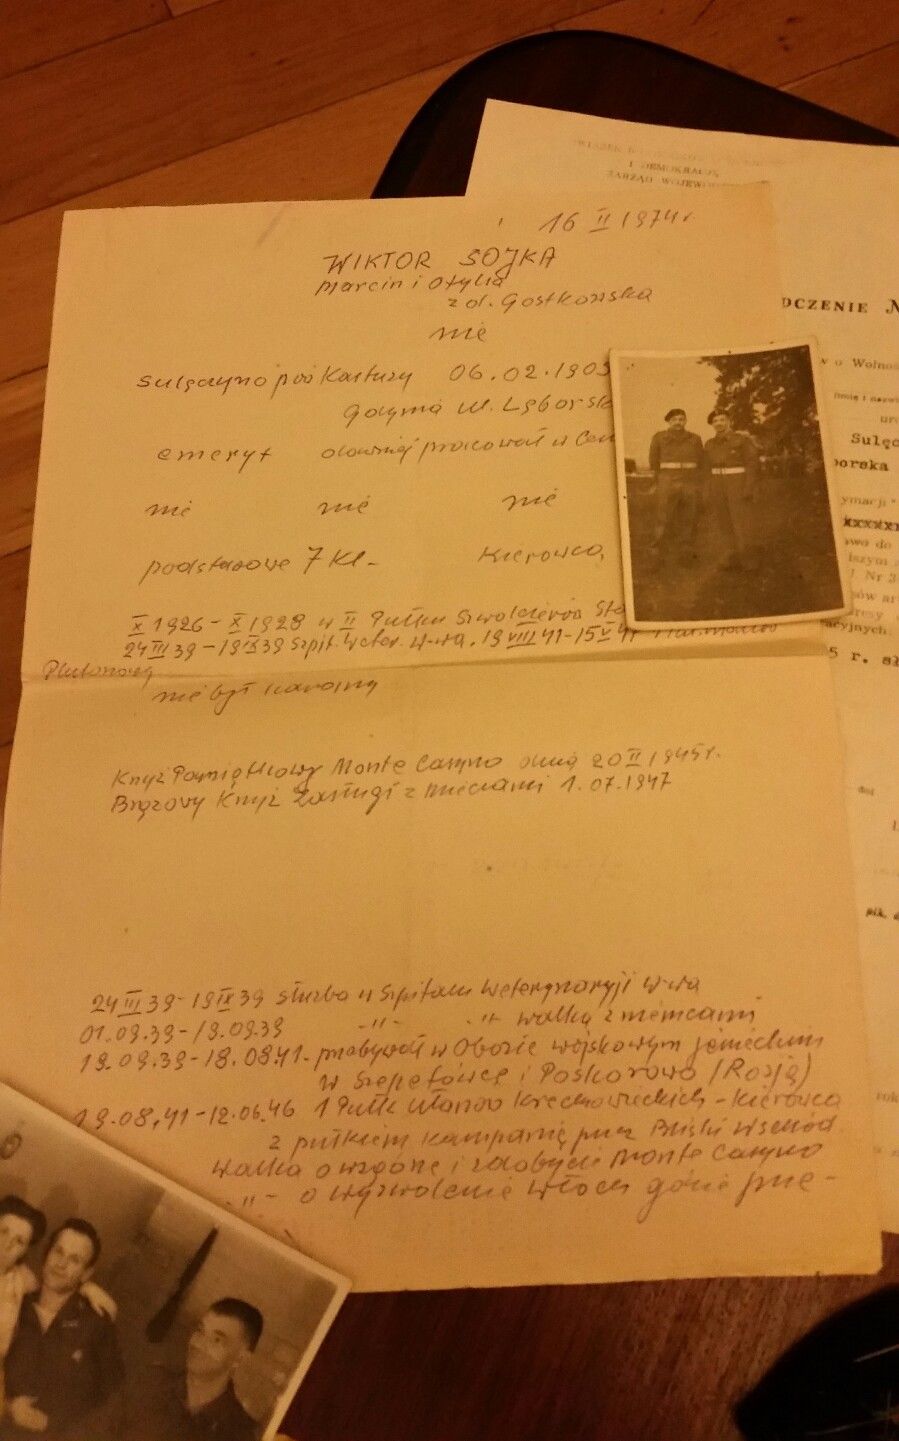 16 II 1974 r
WIKTOR SOJKA
Marcin i Otylia
z d. Gostkowska
nie
Sulęczyno pow Kartuzy 06.02.190
Gdynia ul. Lębors
emeryt dawniej pracował w Cen
nie nie nie
podstawowe 7 Kl- Kierowca
X 1926 - X 1928 w II Pułku Szwoleżerów Sta
24 III 39 - 19 IX 39 Szpit. Weter. W-wa. 19 VIII 41 - 15 V 4
Plutonowy
nie był karany
Krzyż Pamiątkowy Monte Casyno dnia 20 II 1945 r.
Brązowy Krzyż Zasługi z Mieczami 1.07.1947
24 III 39 - 19 IX 39 służba w Szpitalu Weterynaryji W-wa
01.09.39 - 19.09.39 -"- -"- walka z niemcami
19.09.39 - 18.08.41 - przebywał w Obozie wojskowym jenieckim
w Szepetówce i (Rosja)
19.08.41 - 12.06.46 1 Pułk Ułanów Krechowieckich - Kierowca
z pułkiem kampanię przez Bliski Wschód
walka o wzgórze i zdobycie Monte Casyno
-"- o wyzwolenie Włoch
I DEMOKRACJĘ
ZARZĄD WOJEW
DCZENIE N
w o Wolno
Sulęc
orska
ymacji
xxxxxx
owo do
Nr 3
5 r. sł